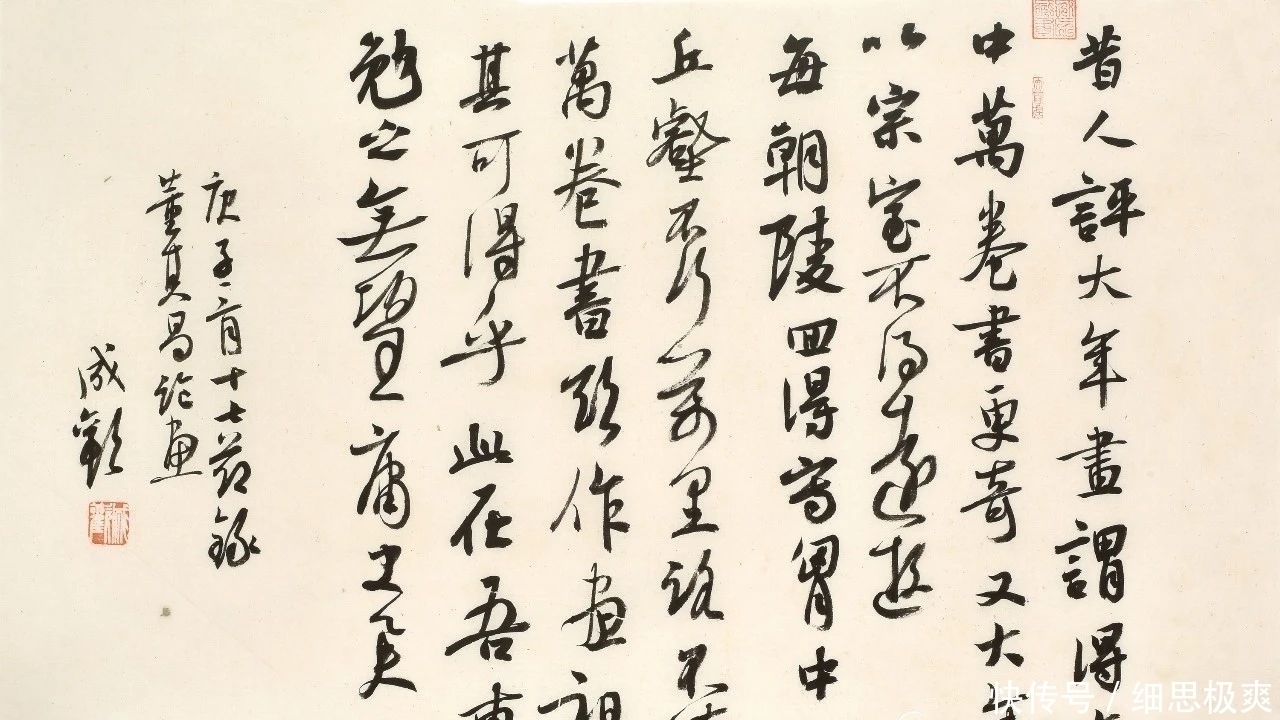 昔人評大年畫謂得
中萬卷書更奇又大
以宗室不得遠遊
每朝陵回得寫胷中
丘壑不行萬里路不
萬卷書欲作畫祖
其可得乎此在吾
勉之無望庸史矣
庚子二月十七日節錄
董其昌論畫
成觀
快传号 / 细思极爽